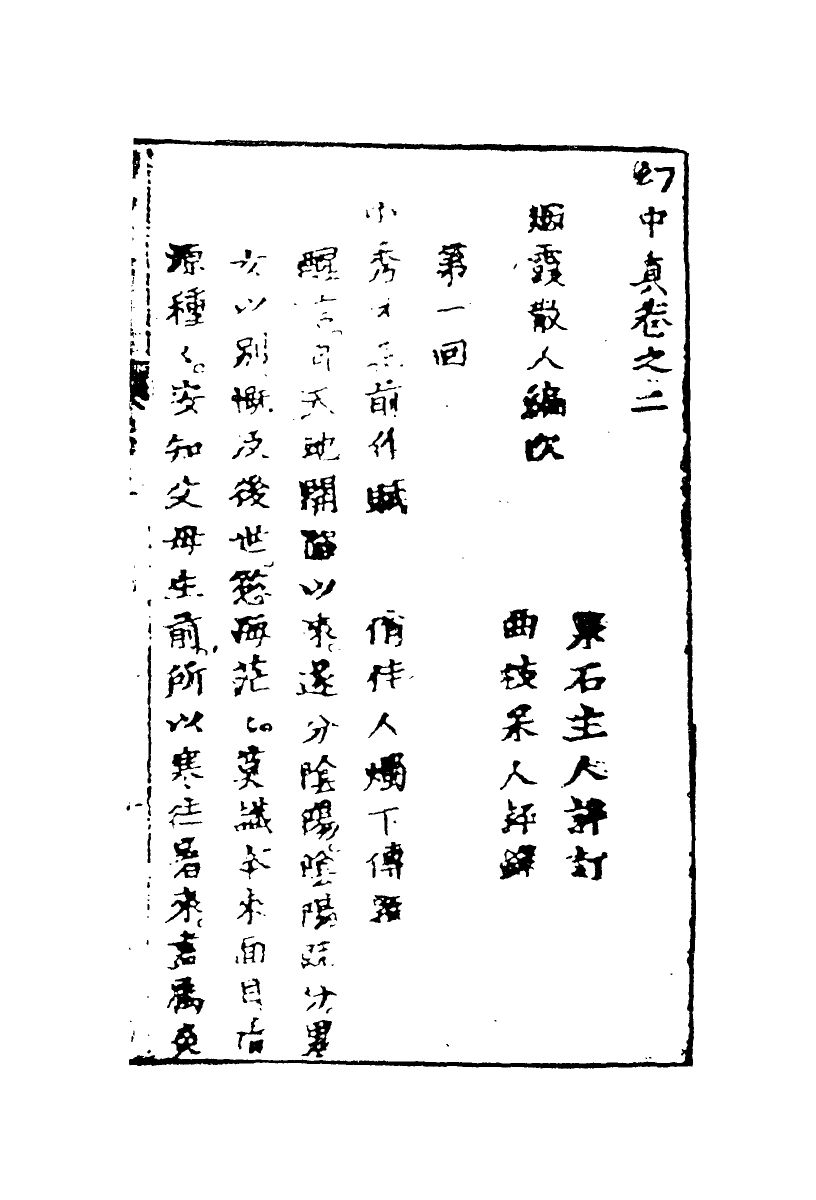 幻中真卷之二
烟霞散人編次
泉石主人評訂
曲枝呆人評釋
第一回
小秀才 前作賦 俏佳人燭下傳
醒言 天地開 以來遂分陰陽陰陽既分
女以別慨及後世慾海茫〻莫識本來面目
源種〻安知父母生前所以寒往暑來